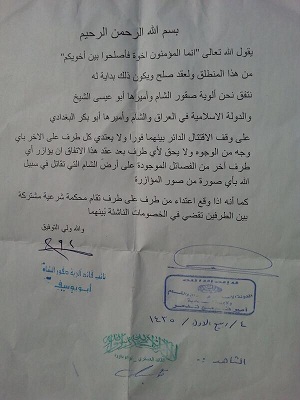 بسم الله الرحمن الرحيم
يقول الله تعالى "انما المؤمنون اخوة فأصلحوا بين أخويكم"
من هذا المنطلق ولعقد صلح ويكون ذلك بداية له
نتفق نحن ألوية صقور الشام وأميرها أبو عيسى الشيخ
والدولة الاسلامية في العراق والشام وأميرها أبو بكر البغدادي
على وقف الاقتتال الدائر بينهما فورا ولا يعتدي كل طرف على الاخر بأي
وجه من الوجوه ولا يحق لأي طرف بعد عقد هذا الاتفاق ان يؤازر أي
طرف آخر من الفصائل الموجودة على أرض الشام التي تقاتل في سبيل
الله بأي صورة من صور المؤازرة
كما أنه اذا وقع اعتداء من طرف على طرف تقام محكمة شرعية مشتركة
بين الطرفين تقضي في الخصومات الناشئة بينهما
والله ولي التوفيق
٤/ربيع الاول/١٤٣٥
الشاهد: